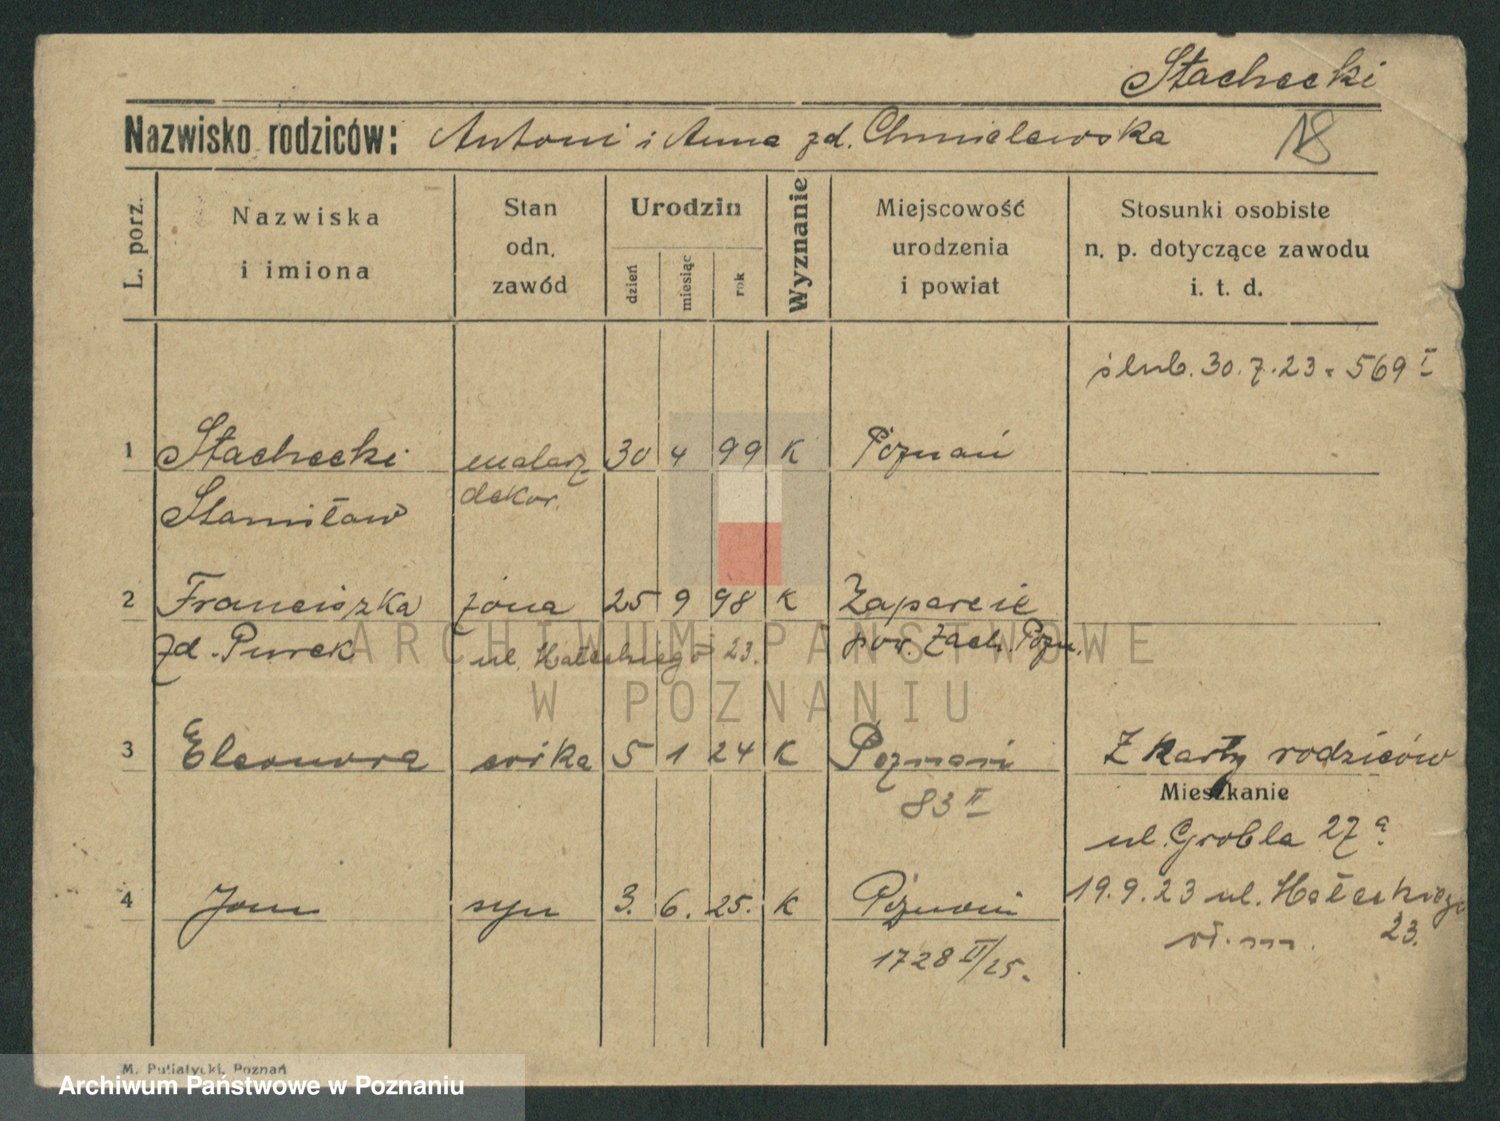 Stachecki
Nazwisko rodziców: Antoni i Anna zd. Chmielewska 18
L. porz.
Nazwiska
i imiona
Stan
odn.
zawód
Urodzin
dzień
miesiąc
rok
Wyznanie
Miejscowość
urodzenia
i powiat
Stosunki osobiste
n. p. dotyczące zawodu
i. t. d.
ślub. 30.7.23. 569 I
1 Stachecki malarz 30 4 99 K Poznań
Stanisław dekor.
2 Franciszka żona 25 9 98 K
zd. Purek pow. Zach. Pozn.
ul. 23.
3 Eleonora córka 5 1 24 K Poznań Z karty rodziców
83 II
Mieszkanie
ul. Grobla 27 a
4 Jan syn 3. 6. 25. K Poznań 19.9.23 ul.
23.
1728 II/25.
M. Putiatycki, Poznań
ARCHIWUM PAŃSTWOWE
W POZNANIU
Archiwum Państwowe w Poznaniu